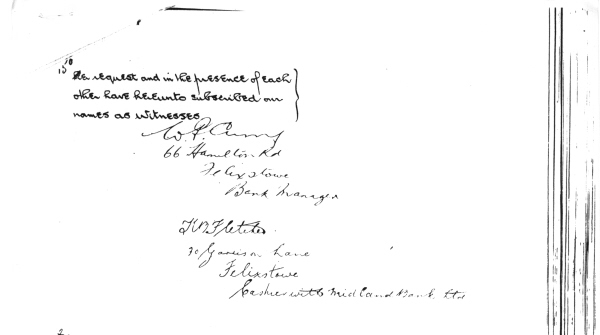 her request and in the presence of each
other have hereunto subscribed our
names as witnesses
66 Hamilton Rd
Felixstowe
Bank Manager
Fletcher
Garrison Lane
Felixstowe
Cashier with Midland Bank Ltd
2